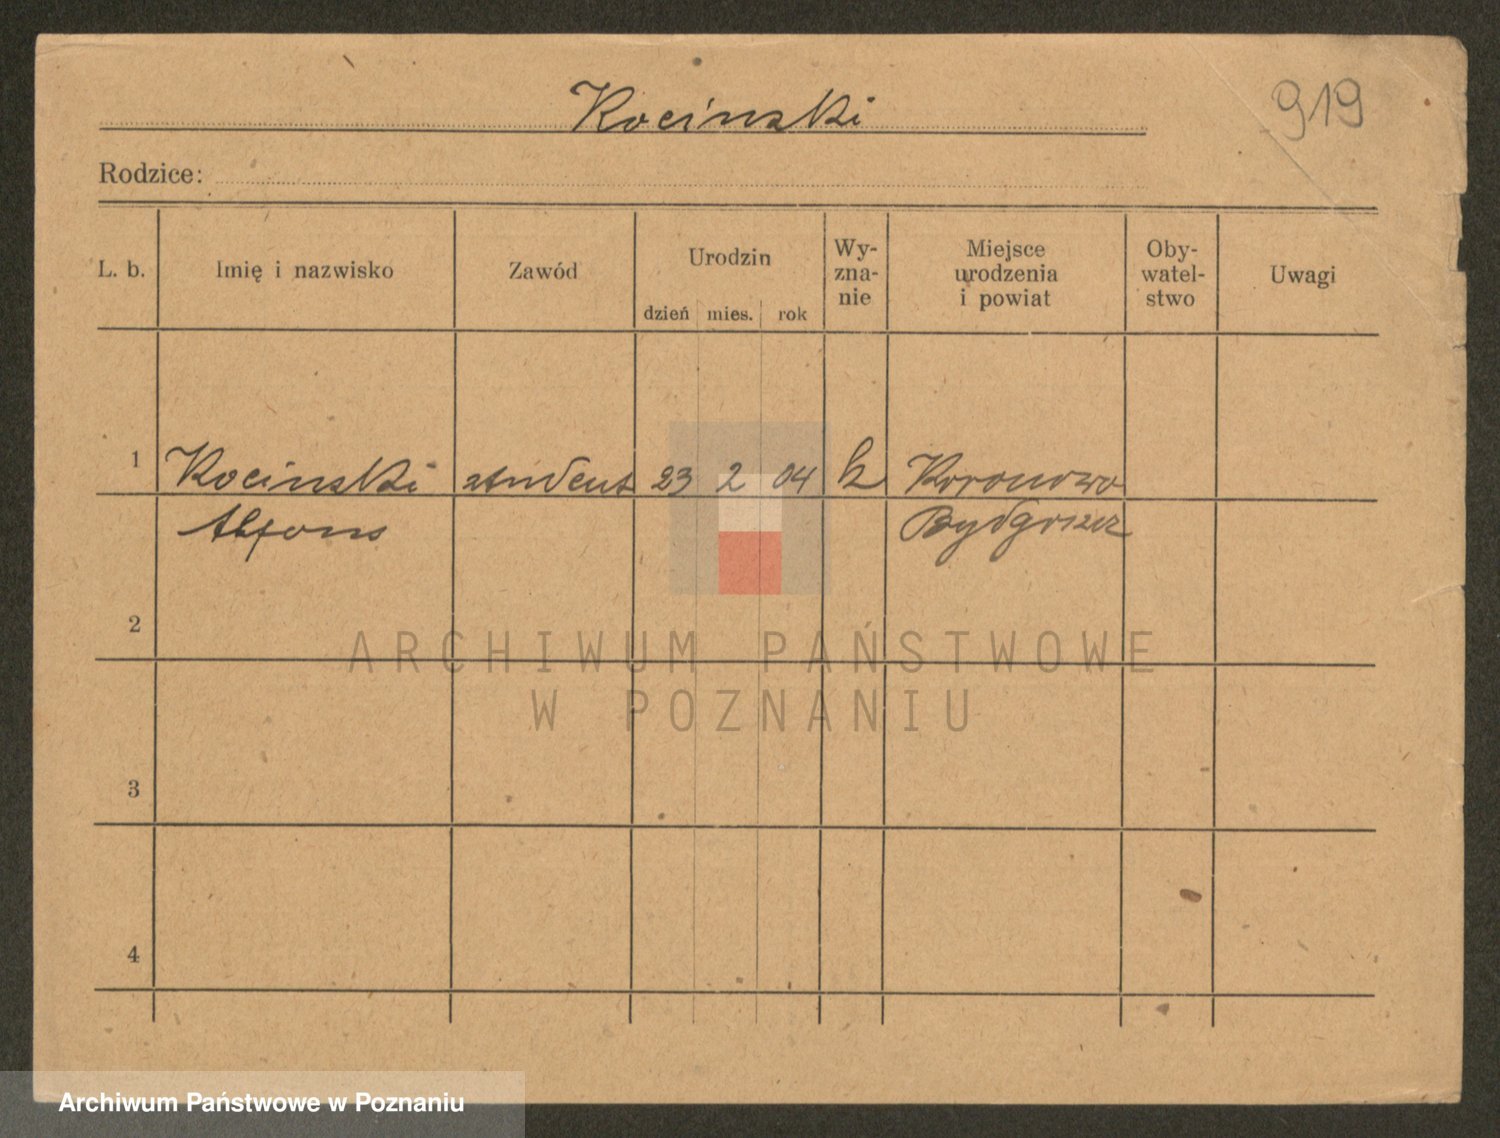 Kocinski
919
Rodzice:
L. b.
Imię i nazwisko
Zawód
Urodzin
dzień mies. rok
Wy-
zna-
nie
Miejsce
urodzenia
i powiat
Oby-
watel-
stwo
Uwagi
1 Kocinski student 23 2 04 k Koronowo
Alfons Bydgoszcz
2
3
4
ARCHIWUM PAŃSTWOWE
W POZNANIU
Archiwum Państwowe w Poznaniu